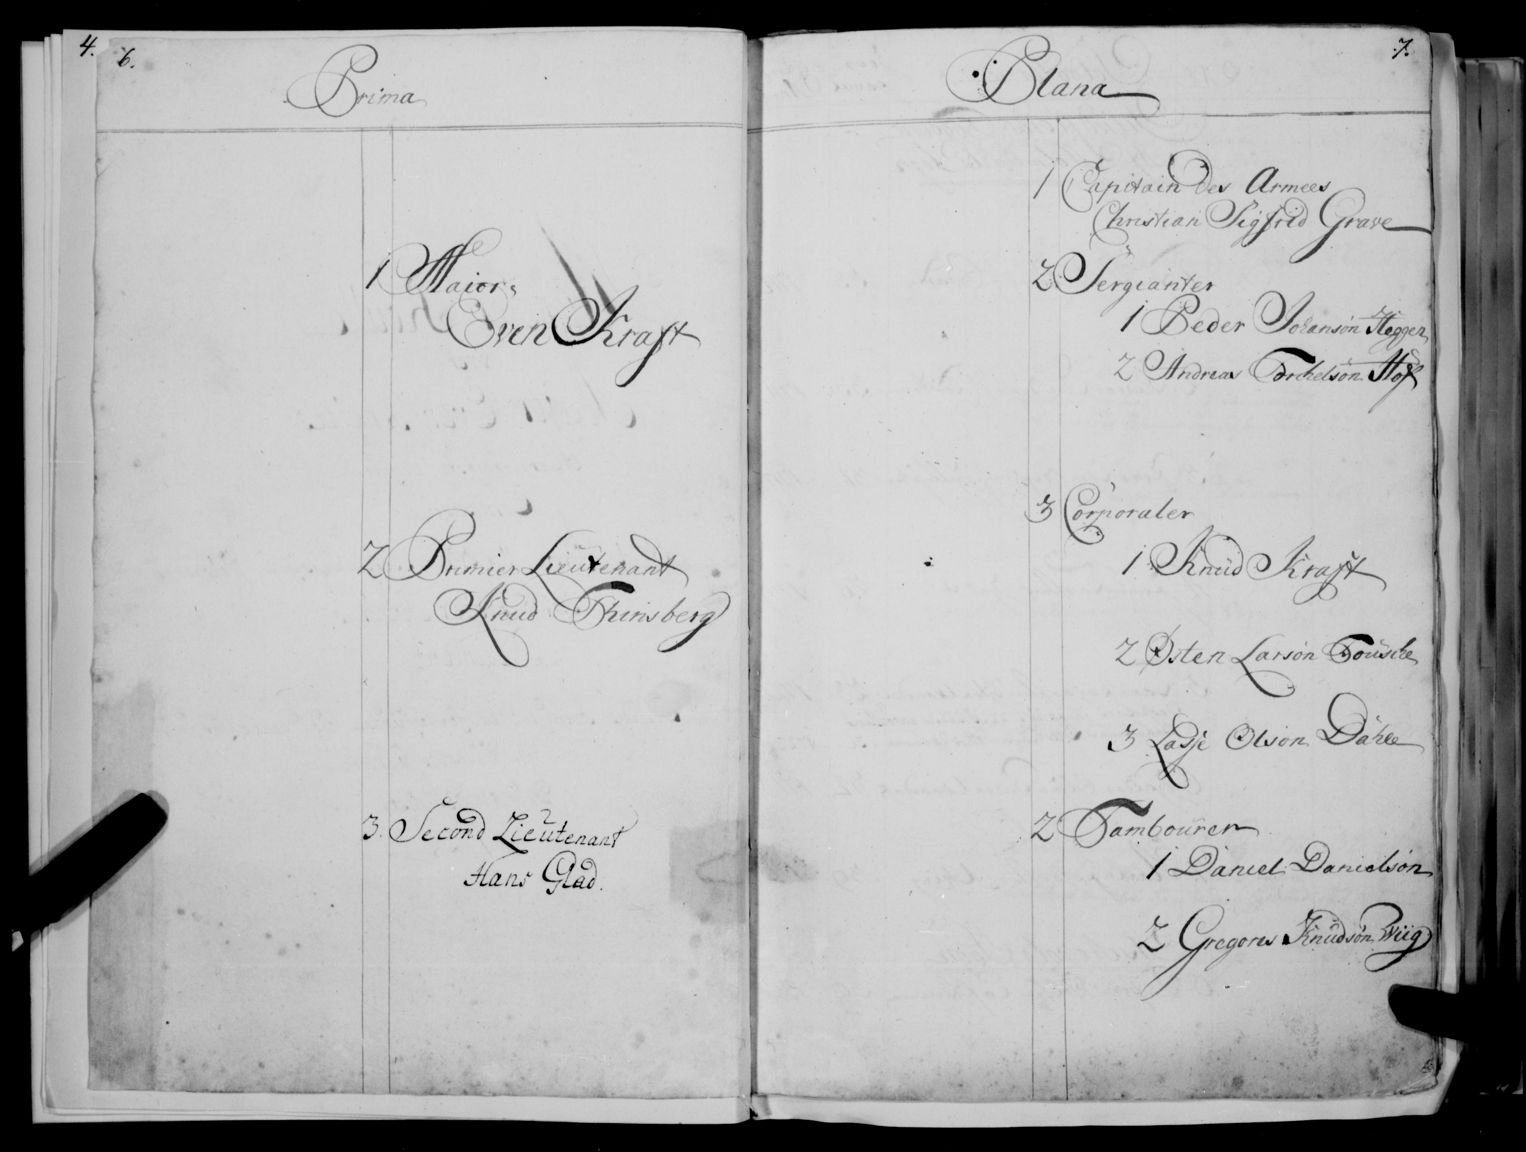 4. 6.
Prima
1 Maior,
Even Kraft
2 Primier Lieutenant
Knud Thinsberg
3. Second Lieutenant
Hans Glad.
7.
Plana
1 Capitain des Armees
Christian Sigfrid Grave
2 Sergianter
1 Peder Johansøn Heggen
2 Andreas Torchelsøn Hof
3 Corporaler
1 Knud Kraft
2 Østen Larsøn
3 Olsøn Dahle
2 Tambourer
1 Daniel Danielsøn
2 Gregores Knudsøn Wiig